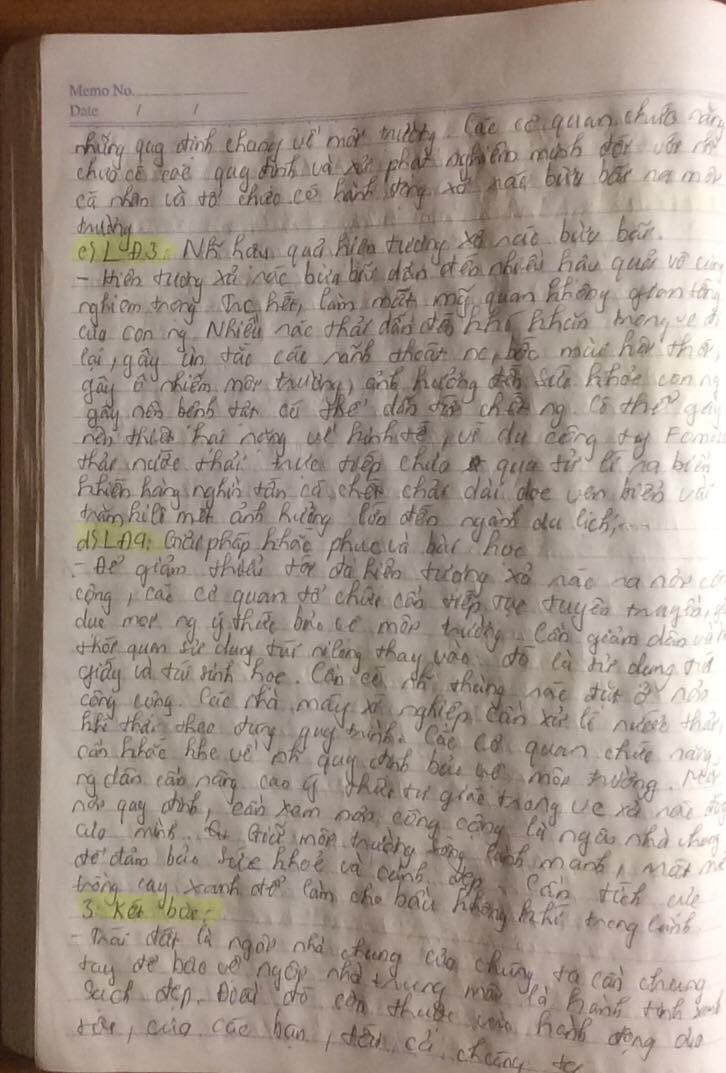 Memo No.
Date / /
những quy định chung về môi trường. Các cơ quan chức năng
chưa có các quy định và xử phạt nghiêm minh đối với
cá nhân và tổ chức có hành động xả rác bừa bãi ra môi
trường
c) LĐ3: Nh hậu quả hiện tượng xả rác bừa bãi.
- Hiện tượng xả rác bừa bãi dẫn đến nhiều hậu quả vô cùng
nghiêm trọng Trc hết, làm mất mỹ quan không gian
của con ng. Nhiều rác thải dẫn đến khó khăn trong đi
lại, gây ùn tắc các rãnh thoát nc, bốc mùi hôi thối,
gây ô nhiễm môi trường, ảnh hưởng đến sức khỏe con ng
gây nên bệnh tật có thể dẫn tới chết ng. Có thể gây
nên thiệt hại nặng về kinh tế, ví dụ công ty
thải nước thải trực tiếp chưa qua xử lí ra biển
khiến hàng nghìn tấn cá chết trải dài dọc ven biển vài
trăm kilimét ảnh hưởng lớn đến ngành du lịch,...
d) LĐ4: Giải pháp khắc phục và bài học
- Để giảm thiểu tối đa hiện tượng xả rác ra nơi
cộng, các cơ quan tổ chức cần tiếp tục tuyên truyền,
dục mọi ng ý thức bảo vệ môi trường. Cần giảm dần
thói quen sử dụng túi nilong thay vào đó là sử dụng túi
giấy và túi sinh học. Cần có nh thùng rác đặt ở nơi
công cộng. Các nhà máy xí nghiệp cần xử lí nước thải,
khí thải theo đúng quy trình. Các cơ quan chức năng
cần khắc khe về nh quy định bảo vệ môi trường.
ng dân cần nâng cao ý thức tự giác trong vc xả rác đúng
nơi quy định, cần xem nơi công cộng là ngôi nhà chung
của mình. Giữ môi trường sống lành mạnh,
để đảm bảo sức khoẻ và cảnh đẹp. Cần tích cực
trồng cây xanh để làm cho bầu không khí trong lành
3. Kết bài:
- Trái đất là ngôi nhà chung của chúng ta cần chung
tay để bảo vệ ngôi nhà chung mãi là hành tinh xanh
sạch đẹp. Điều đó còn thuộc vào hành động do
tôi, của các bạn, tất cả chúng ta